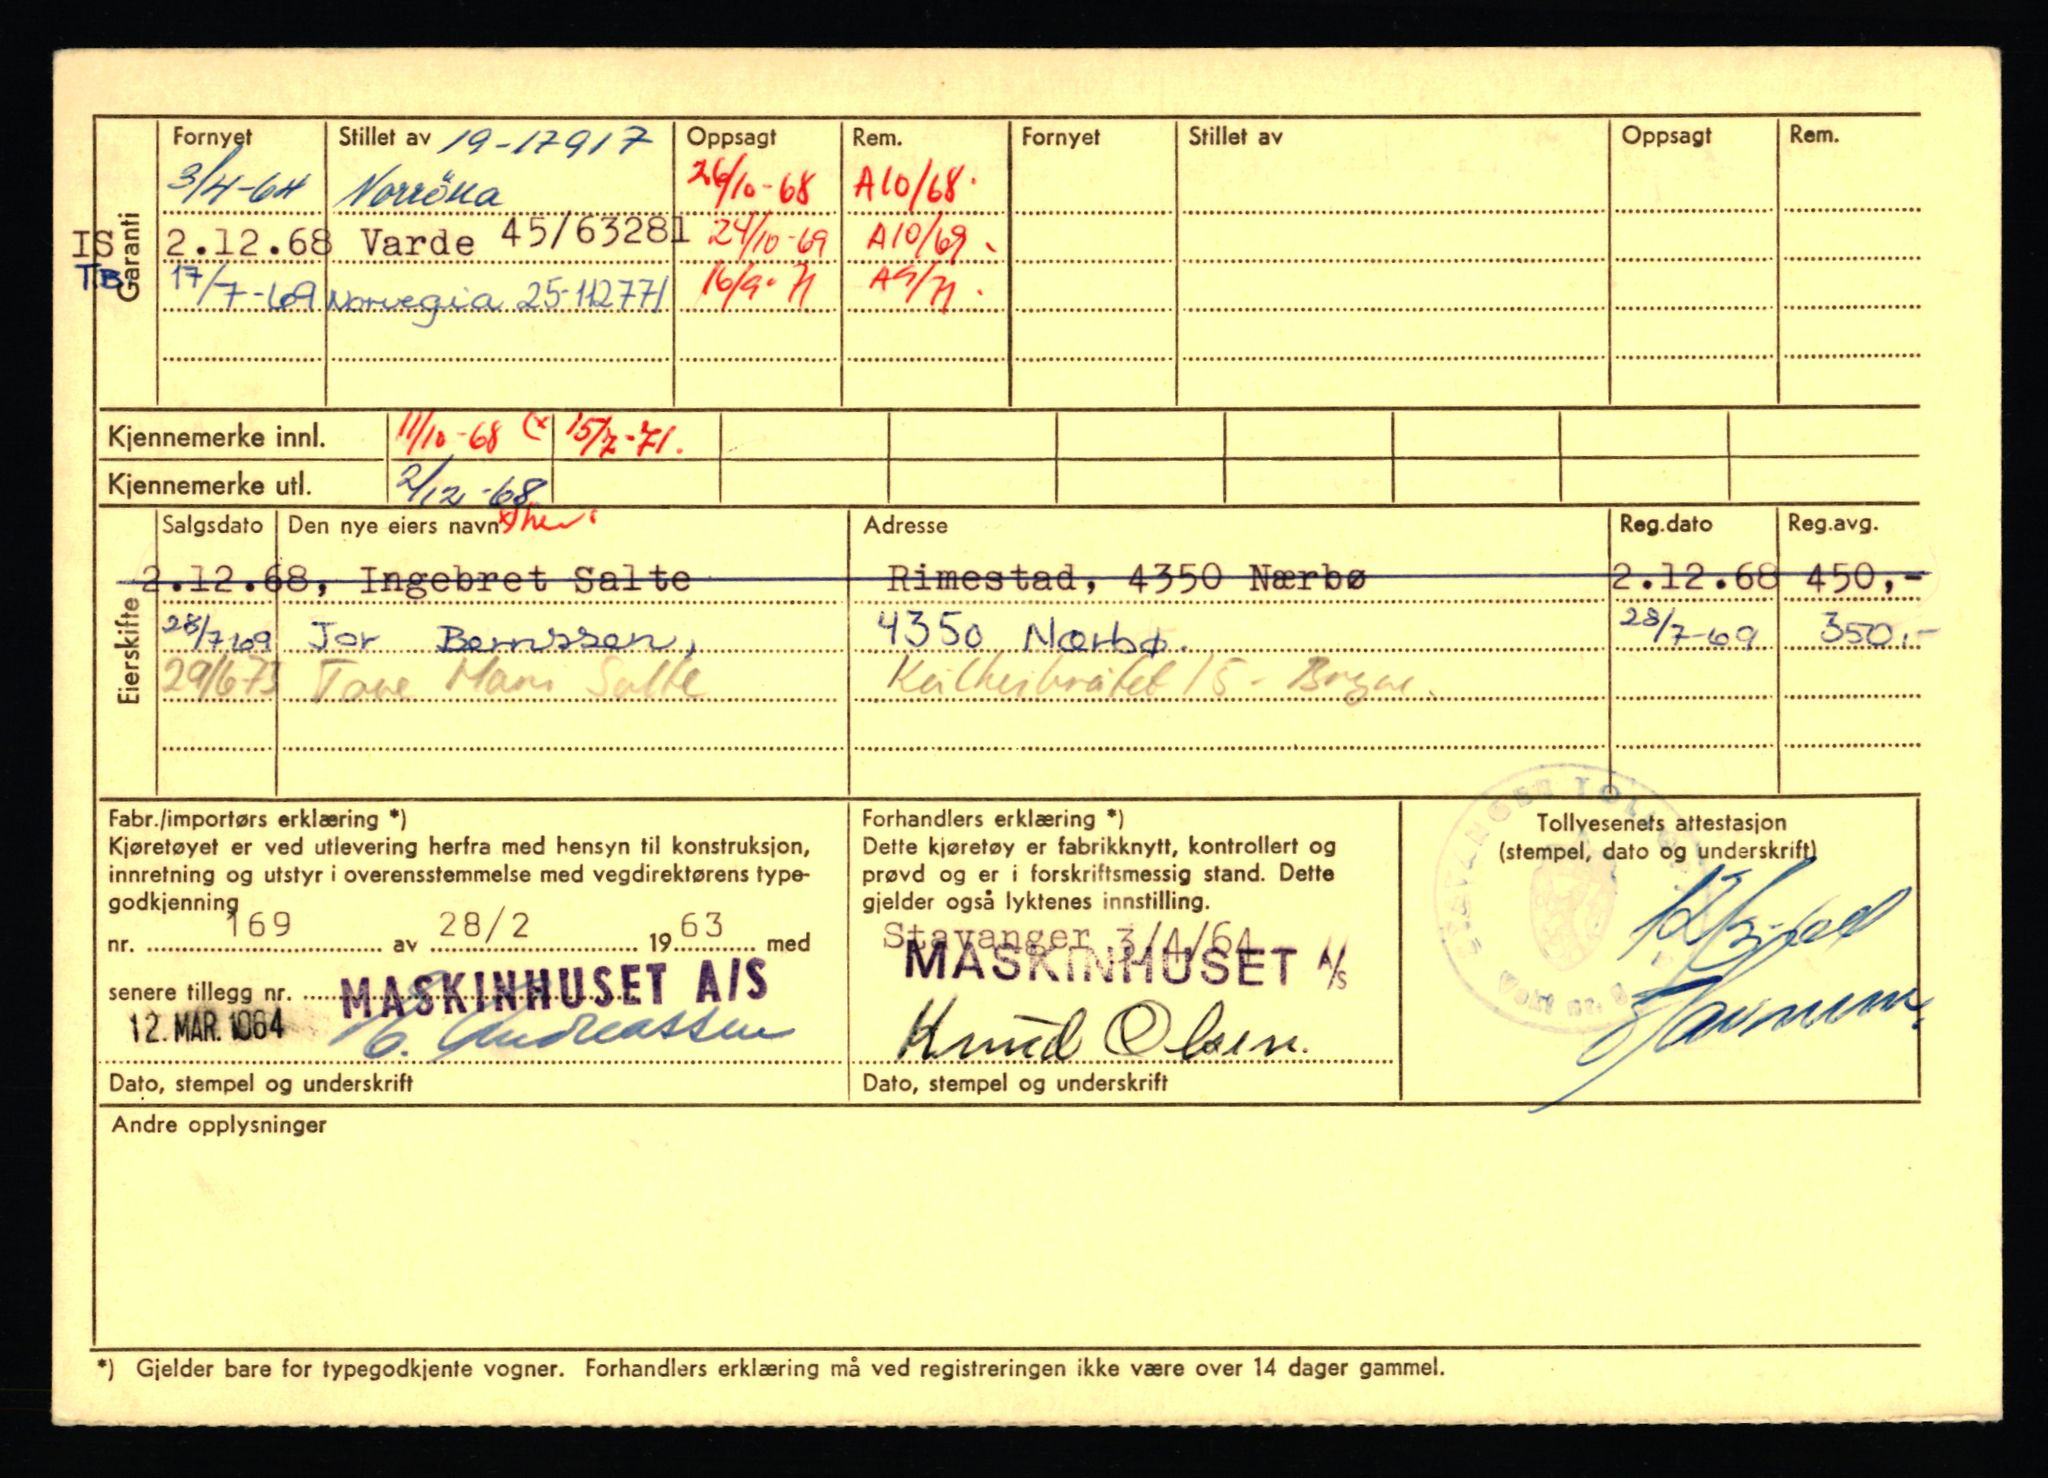 Fornyet Stillet av 19-17917 Oppsagt Rem. Fornyet Stillet av Oppsagt Rem.
3/4-64 Norröna 26/10-68 A10/68.
IS 2.12.68 Varde 45/63281 24/10-69 A10/69.
TB 17/7-69 Norvegia 25-112771 16/9-71 A9/71.
Garanti
Kjennemerke innl. 11/10-68 (x 15/7-71.
Kjennemerke utl. 2/12-68
Salgsdato Den nye eiers navn Adresse Reg.dato Reg.avg.
2.12.68, Ingebret Salte Rimestad, 4350 Nærbø 2.12.68 450,-
28/7-69 Jor Berntsen, 4350 Nærbø. 28/7-69 350.-
29/6 73 Tove Salte 15 - Bryne.
Eierskifte
Fabr./importørs erklæring *)
Kjøretøyet er ved utlevering herfra med hensyn til konstruksjon,
innretning og utstyr i overensstemmelse med vegdirektørens type-
godkjenning
nr. 169 av 28/2 1963 med
senere tillegg nr. MASKINHUSET A/S
12. MAR. 1964 Andreassen
Dato, stempel og underskrift
Forhandlers erklæring *)
Dette kjøretøy er fabrikknytt, kontrollert og
prøvd og er i forskriftsmessig stand. Dette
gjelder også lyktenes innstilling.
Stavanger 3/4/64
MASKINHUSET A/S
Knud Olsen.
Dato, stempel og underskrift
Tollvesenets attestasjon
(stempel, dato og underskrift)
Andre opplysninger
*) Gjelder bare for typegodkjente vogner. Forhandlers erklæring må ved registreringen ikke være over 14 dager gammel.